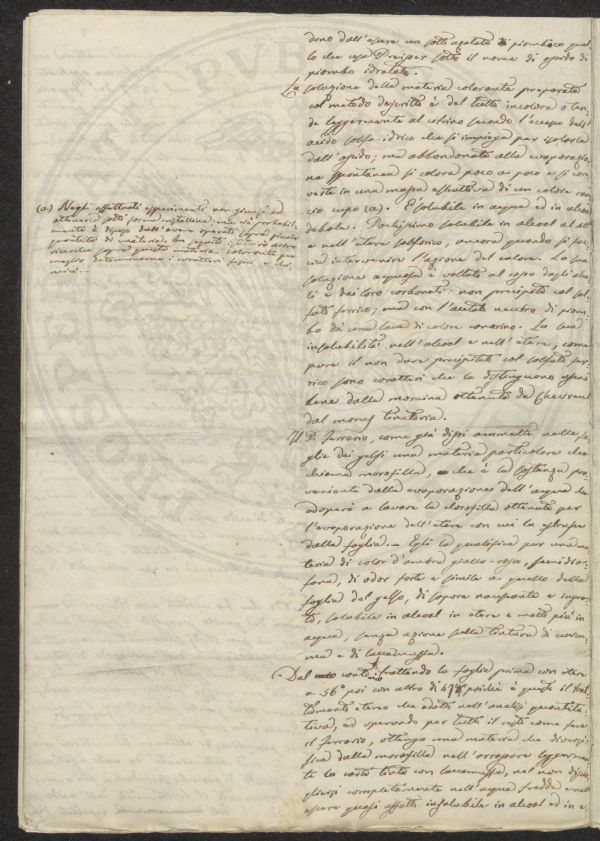 dono dall'essere un sotto acetato di piombo o quel
lo che usa Preisser sotto il nome di ossido di
piombo idratato.
La soluzione della materia colorante preparata
col metodo descritto è del tutto incolora o ten
de leggermente al citrino secondo l'eccesso dell'
acido solfo-idrico che si impiega per isolarla
dall'ossido; ma abbandonata alla evaporazio
ne spontanea si colora poco a poco e si con
verte in una massa estrattiva di un colore ran
cio cupo (a). È solubile in acqua ed in alcool
debole. Pochissimo solubile in alcool al 40°
e nell'etere solforico, ancora quando si fac
cia intervenire l'azione del calore. La sua
soluzione acquosa è voltata al rosso dagli alca
li e dei loro carbonati: non precipita col sol
fato ferrico; ma con l'acetato neutro di piom
bo dà una lacca di colore canarino. La sua
insolubilità nell'alcool e nell'etere, come
pure il non dare precipitato col solfato fer
rico sono caratteri che la distinguono assai
bene dalla morina ottenuta da Chevreul
dal morus tinctoria.
Il D. Ferrario, come già dissi ammette nella fo
glia dei gelsi una materia particolare che
chiama morofilla, che è la sostanza pro
veniente dalla evaporazione dell'acqua che
adoperò a lavare la clorofilla ottenuta per
l'evaporazione dell'etere con cui la estrasse
dalla foglia. - Egli la qualifica per una ma
teria di color d'ambra giallo-rossa, semidia
fana, di odor forte e simile a quello della
foglia del gelso, di sapore nauseante e ingra
to, solubile in alcool in etere e molto più in
acqua, senza azione sulla tintura di curcu
ma e di laccamuffa.
Dal canto mio trattando la foglia prima con etere
a 56° poi con altro di poichè è questo il trat
tamento etereo che adottai nell'analisi quantita
tiva, ed operando per tutto il resto come fece
il Ferrario, ottengo una materia che diversi
fica dalla morofilla nell'arrossare leggermen
te la carta tinta con laccamuffa, nel non discio
gliersi completamente nell'acqua fredda e nell'
essere quasi affatto insolubile in alcool ed in e
(a) Negli effettuati esperimenti non giunsi ad
ottenerla sotto forma cristallina: ma ciò probabil
mente è dipeso dall'avere operato sopra piccole
quantità di materia. In seguito
ricerche sopra questa materia colorante per
meglio determinarne i caratteri fisici e chi
mici.